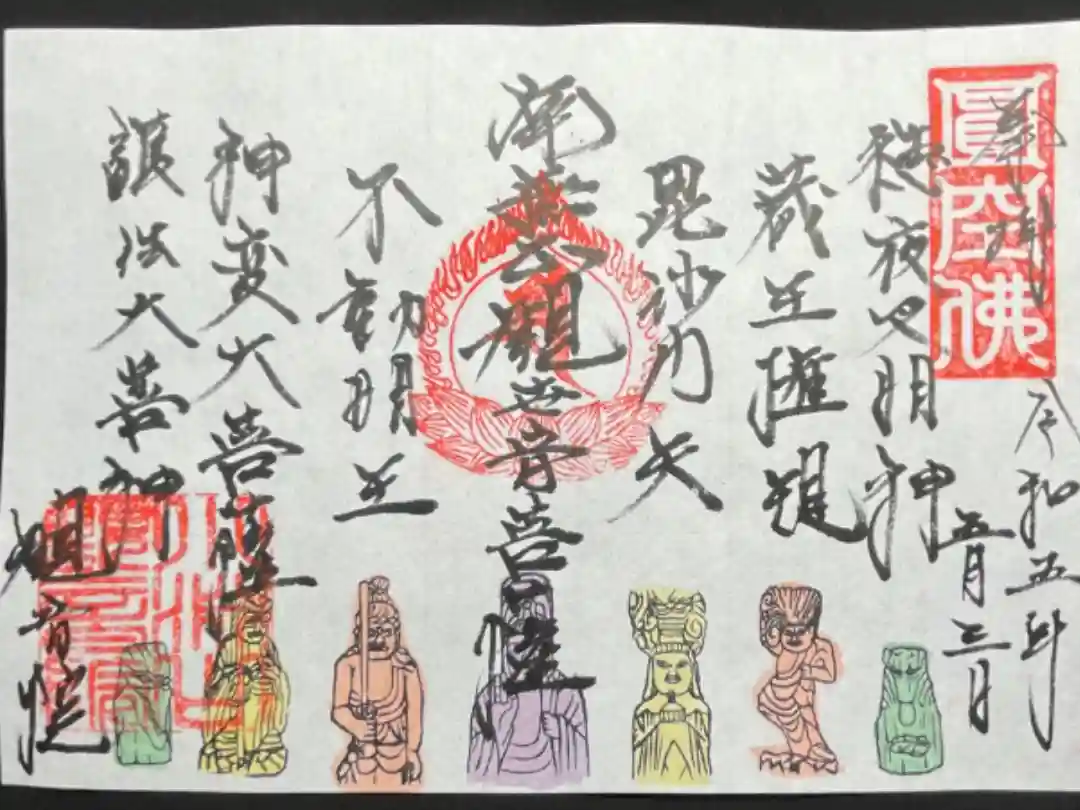 圓空佛
奉拝
令和五年
五月三日
夜叉明神
蔵王権現
毘沙門天
南無 観世音菩薩
不動明王
神変大菩薩
護法大善神
観音院